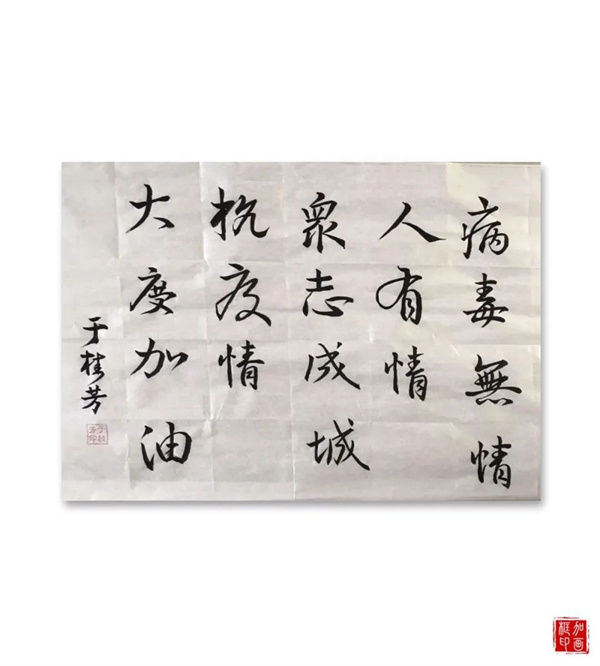 病毒無情
人有情
衆志成城
抗疫情
大度加油
于桂芳
加画
框印